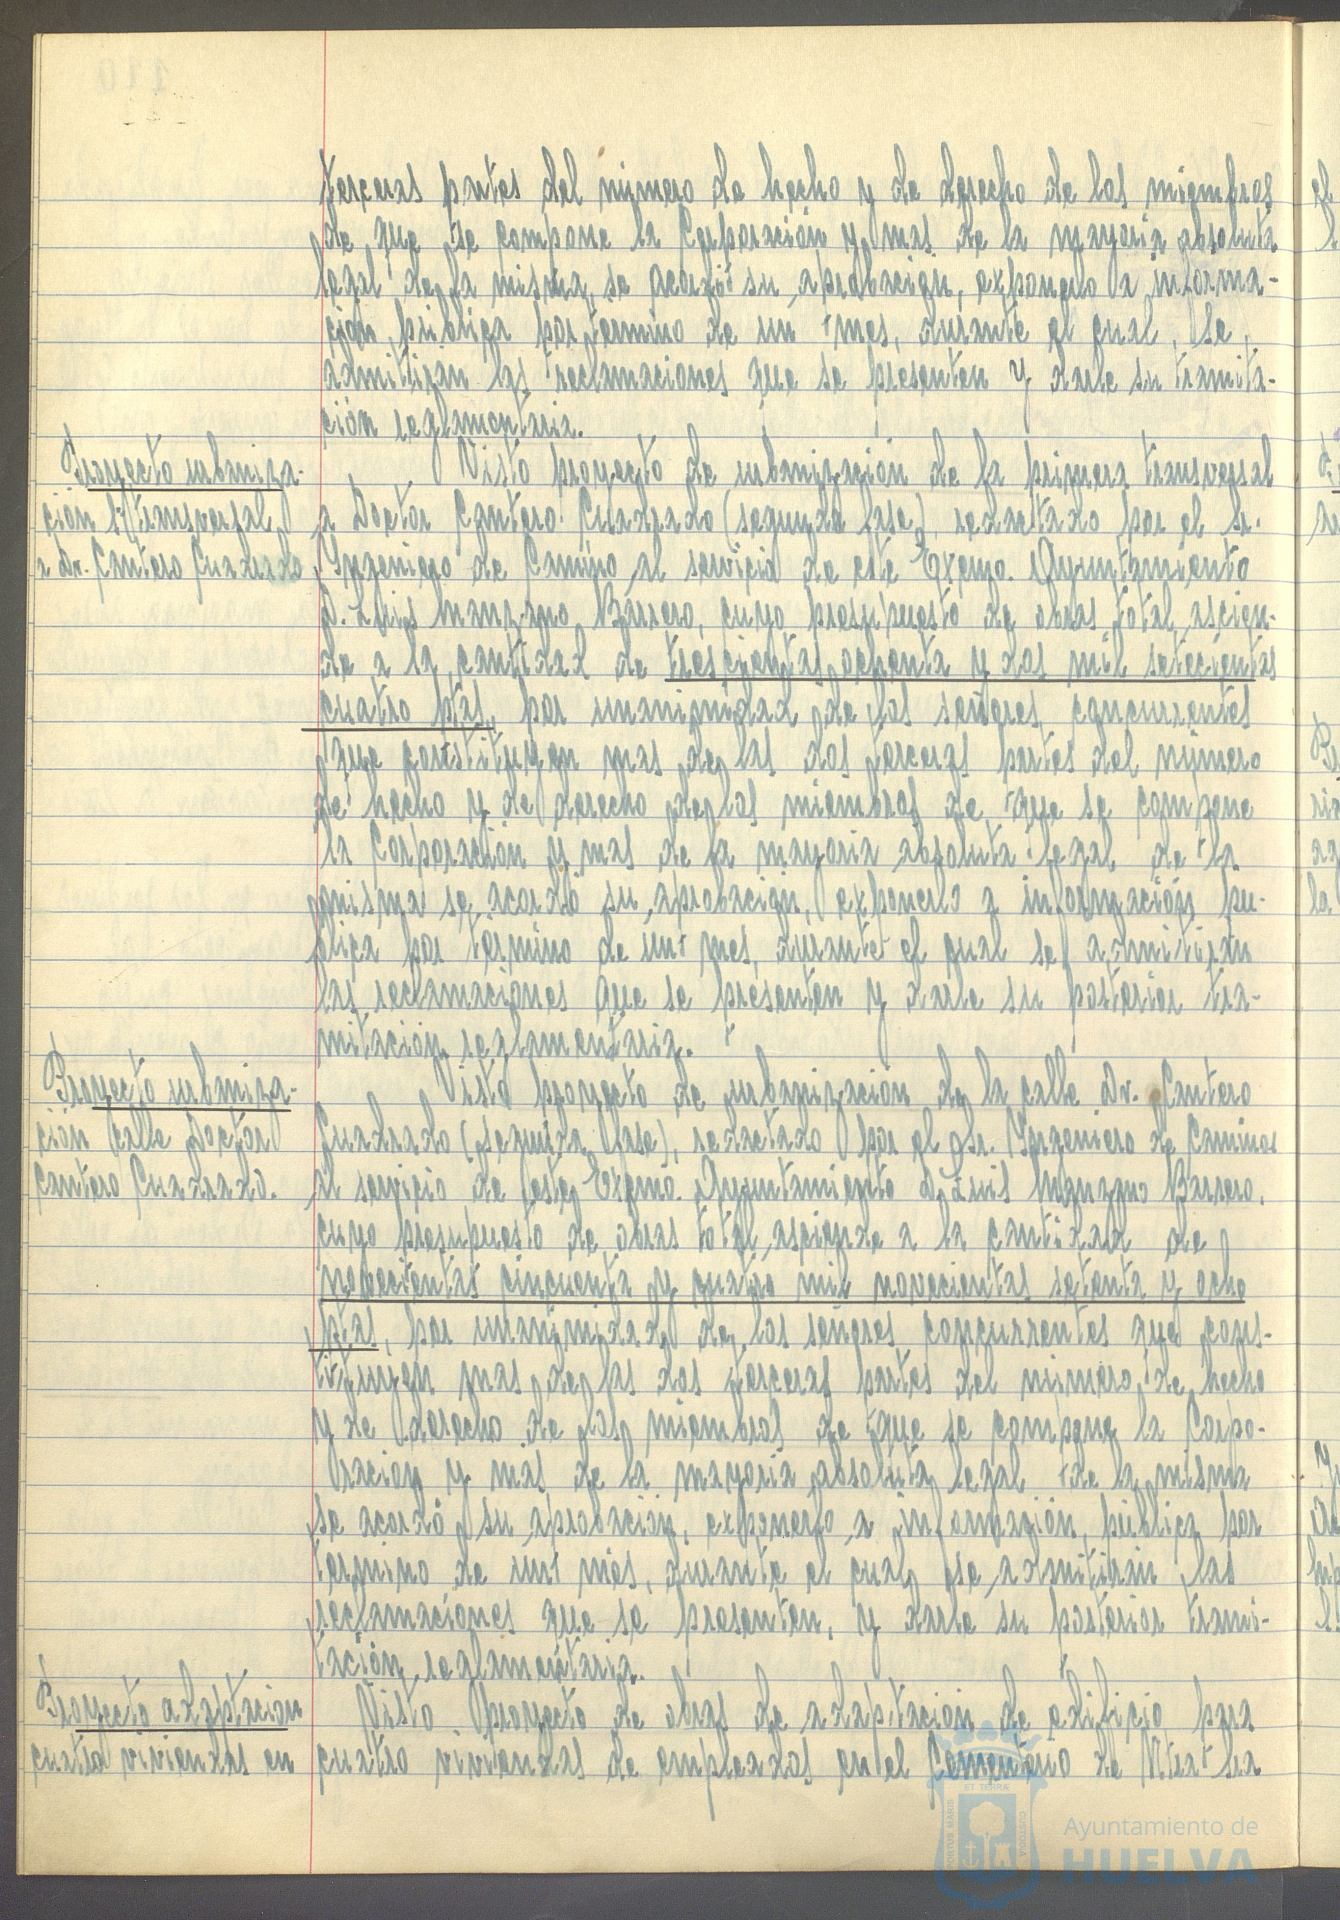 terceras partes del número de hecho y de derecho de los miembros
de que se compone la Corporación y mas de la mayoria absoluta
legal de la misma, se acordó su aprobación, exponerlo a informa-
ción pública por termino de un mes, durante el cual, se
admitiran las reclamaciones que se presenten y darle su tramita-
ción reglamentaria.
Proyecto urbaniza-
ción 1ª transversal
a Dr. Cantero Cuadrado
Visto proyecto de urbanización de la primera transversal
a Doctor Cantero Cuadrado (segunda fase), redactado por el Sr.
Ingeniero de Camino al servicio de este Excmo. Ayuntamiento
D. Luis Manzano Barrero, cuyo presupuesto de obras total ascien-
de a la cantidad de trescientas ochenta y dos mil setecientas
cuatro ptas, por unanimidad de los señores concurrentes
que constituyen mas de las dos terceras partes del número
de hecho y de derecho de los miembros de que se compone
la Corporación y mas de la mayoria absoluta legal de la
misma se acordó su aprobación, exponerlo a información pú-
blica por término de un mes, durante el cual se admitiran
las reclamaciones que se presenten y darle su posterior tra-
mitación reglamentaria.
Proyecto urbaniza-
ción calle Doctor
Cantero Cuadrado.
Visto proyecto de urbanización de la calle Dr. Cantero
Cuadrado (segunda fase), redactado por el Sr. Ingeniero de Caminos
al servicio de este Excmo. Ayuntamiento D. Luis Manzano Barrero,
cuyo presupuesto de obras total asciende a la cantidad de
novecientas cincuenta y cuatro mil novecientas setenta y ocho
ptas, por unanimidad de los señores concurrentes que cons-
tituyen mas de las dos terceras partes del número de hecho
y de derecho de los miembros de que se compone la Corpo-
ración y mas de la mayoria absoluta legal de la misma
se acordó su aprobación, exponerlo a información pública por
termino de un mes, durante el cual se admitirán las
reclamaciones que se presenten, y darle su posterior trami-
tación reglamentaria.
Proyecto adaptación
cuatro viviendas en
Visto proyecto de obras de adaptación de edificio para
cuatro viviendas de empleados en el Cementerio de Ntra. Sra
ET TERRÆ
PORTUS MARIS
CUSTODIA
Ayuntamiento de
HUELVA